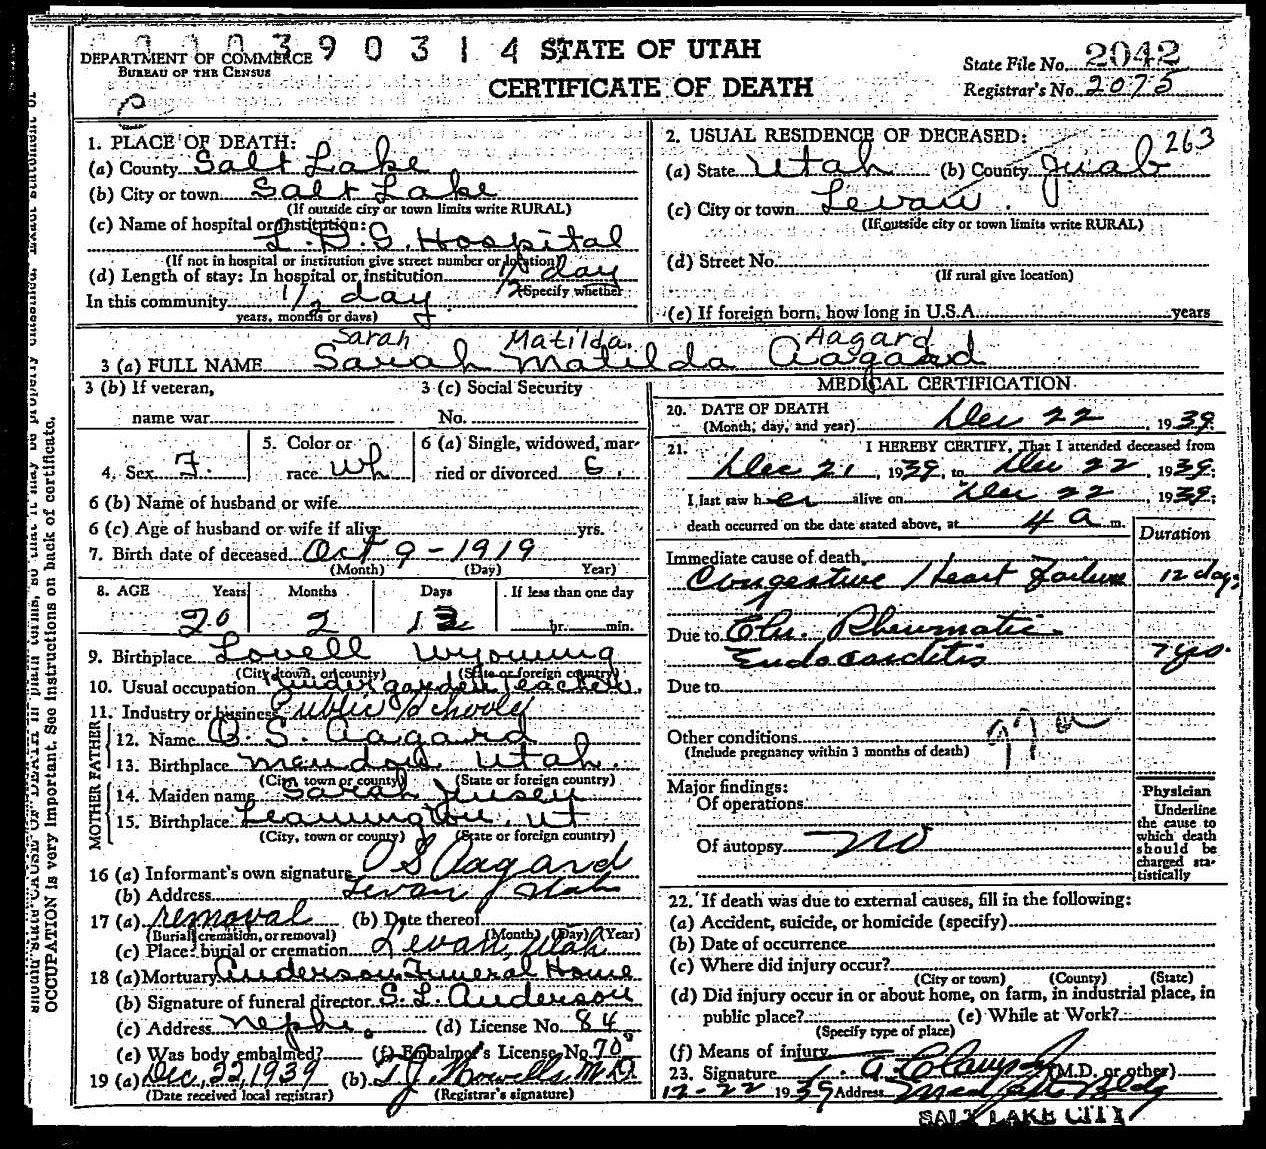 390314
STATE OF UTAH
CERTIFICATE OF DEATH
DEPARTMENT OF COMMERCE
BUREAU OF THE CENSUS
State File No. 2042
Registrar's No. 2075
1. PLACE OF DEATH:
(a) County Salt Lake
(b) City or town Salt Lake
(If outside city or town limits write RURAL)
(c) Name of hospital or institution:
L.D.S. Hospital
(If not in hospital or institution give street number or location)
(d) Length of stay: In hospital or institution 1/2 day
(Specify whether
In this community 1/2 day
years, months or days)
2. USUAL RESIDENCE OF DECEASED: 263
(a) State Utah (b) County Juab
(c) City or town Levan.
(If outside city or town limits write RURAL)
(d) Street No.
(If rural give location)
(e) If foreign born, how long in U.S.A. years
Sarah Matilda Aagard
3 (a) FULL NAME Sarah Matilda Aagard
3 (b) If veteran,
name war
3 (c) Social Security
No.
4. Sex F.
5. Color or
race Wh
6 (a) Single, widowed, mar-
ried or divorced
6 (b) Name of husband or wife
6 (c) Age of husband or wife if alive yrs.
7. Birth date of deceased Oct 9 - 1919
(Month) (Day) Year)
8. AGE Years Months Days If less than one day
20 2 13 hr. min.
9. Birthplace Lovell Wyoming
(City, town, or county) (State or foreign country)
10. Usual occupation Kindergarden Teacher.
11. Industry or business Public Schools
FATHER
12. Name O. S. Aagard
13. Birthplace Utah.
(City, town or county) (State or foreign country)
MOTHER
14. Maiden name Sarah Jensen
15. Birthplace Leamington, Ut
(City, town or county) (State or foreign country)
16 (a) Informant's own signature O S Aagard
(b) Address Levan Utah
17 (a) removal (b) Date thereof
(Burial, cremation, or removal) (Month) (Day) (Year)
(c) Place: burial or cremation Levan, Utah
18 (a) Mortuary Anderson Funeral Home
(b) Signature of funeral director S. L. Anderson
(c) Address Nephi. (d) License No. 84
(e) Was body embalmed? (f) Embalmer's License No. 70
19 (a) Dec. 22, 1939 (b) T J Howells M.D.
(Date received local registrar) (Registrar's signature)
MEDICAL CERTIFICATION
20. DATE OF DEATH
(Month, day, and year) Dec 22, 1939.
21. I HEREBY CERTIFY, That I attended deceased from
Dec 21, 1939, to Dec 22, 1939.
I last saw her alive on Dec 22, 1939;
death occurred on the date stated above, at 4 a m.
Duration
Immediate cause of death,
Congestive Heart Failure 12 days
Due to Chr. Rheumatic
Endocarditis 7 yrs.
Due to
Other conditions
(Include pregnancy within 3 months of death)
Major findings:
Of operations
Of autopsy no
Physician
Underline
the cause to
which death
should be
charged sta-
tistically
22. If death was due to external causes, fill in the following:
(a) Accident, suicide, or homicide (specify)
(b) Date of occurrence
(c) Where did injury occur?
(City or town) (County) (State)
(d) Did injury occur in or about home, on farm, in industrial place, in
public place? (e) While at Work?
(Specify type of place)
(f) Means of injury
23. Signature (M.D. or other)
12-22 1939 Address Bldg
SALT LAKE CITY
OCCUPATION is very important. See instructions on back of certificate.